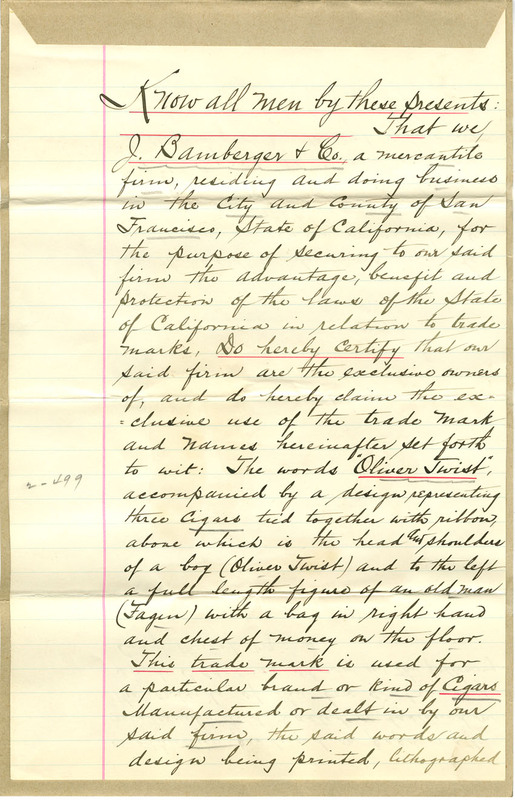 Know all men by these presents:
That we,
J. Bamberger & Co. a mercantile
firm, residing and doing business
in the City and County of San
Francisco, State of California, for
the purpose of securing to our said
firm the advantage, benefit and
protection of the laws of the State
of California in relation to trade
marks, Do hereby certify that our
said firm are the exclusive owners
of, and do hereby claim the ex-
-clusive use of the trade mark
and names hereinafter set forth
to wit: The words "Oliver Twist",
accompanied by a design representing
three Cigars tied together with ribbon,
above which is the head and shoulders
of a boy (Oliver Twist) and to the left
a full length figure of an old man
(Fagin) with a bag in right hand
and chest of money on the floor.
This trade mark is used for
a particular brand or kind of Cigars
Manufactured or dealt in by our
said firm, the said words and
design being printed, lithographed
2-499